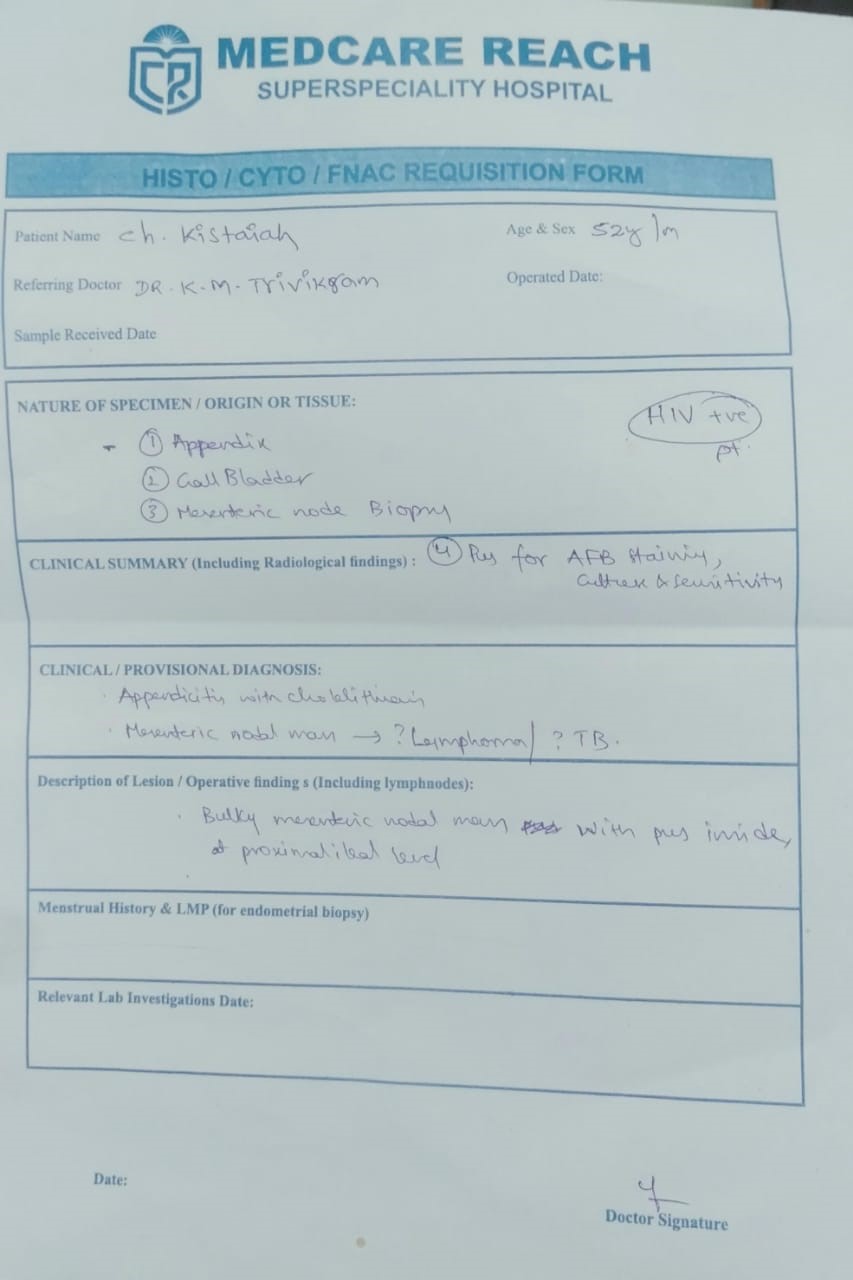 MEDCARE REACH
SUPERSPECIALITY HOSPITAL
HISTO / CYTO / FNAC REQUISITION FORM
Patient Name ch. Kistaiah
Age & Sex 52y/m
Referring Doctor DR. K. M. Trivikram
Operated Date:
Sample Received Date
NATURE OF SPECIMEN / ORIGIN OR TISSUE:
HIV +ve
pt.
- ① Appendix
② Gall Bladder
③ Mesenteric node Biopsy
CLINICAL SUMMARY (Including Radiological findings) : ④ Pus for AFB staining,
culture & sensitivity
CLINICAL / PROVISIONAL DIAGNOSIS:
. Appendicitis with cholelithiasis
. Mesenteric nodal mass → ? Lymphoma / ? TB.
Description of Lesion / Operative finding s (Including lymphnodes):
. Bulky mesenteric nodal mass with pus inside,
at proximal ileal level
Menstrual History & LMP (for endometrial biopsy)
Relevant Lab Investigations Date:
Date:
Doctor Signature